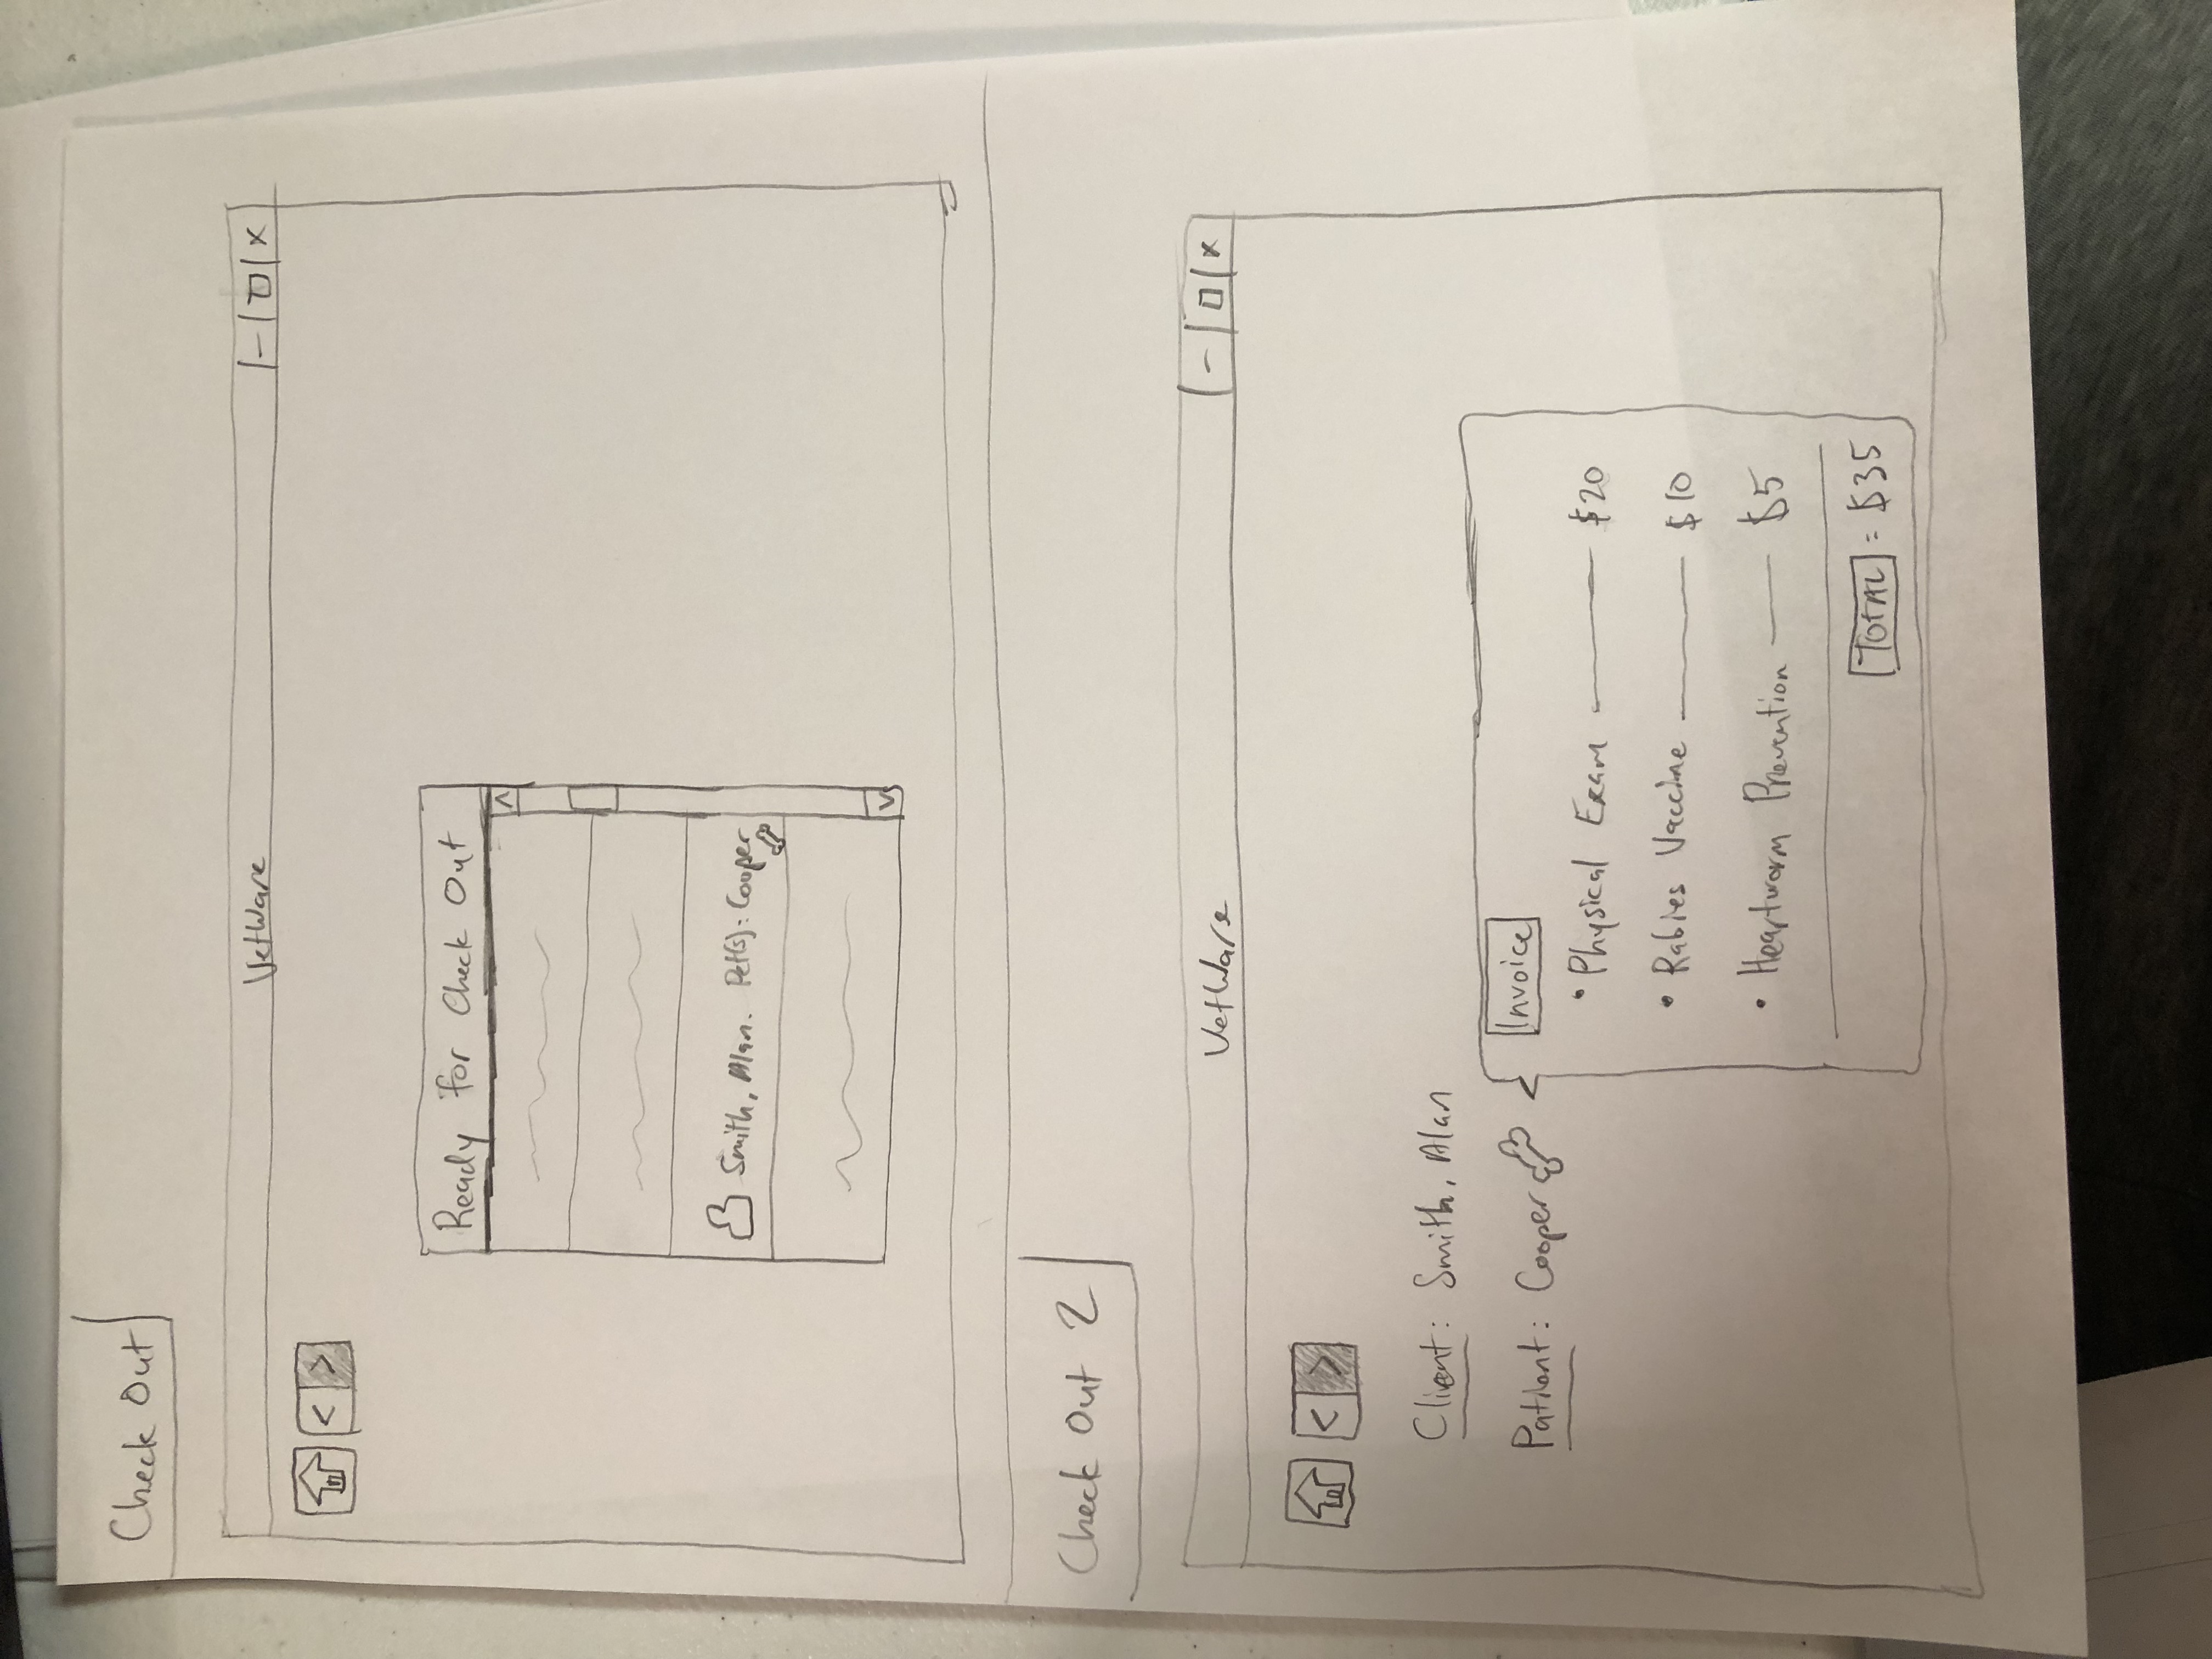 Check Out
VetWare
- □ x
< >
Ready for Check Out
^
Smith, Alan. Pet(s): Cooper
v
Check Out 2
VetWare
- □ x
< >
Client: Smith, Alan
Patient: Cooper
Invoice
• Physical Exam —— $20
• Rabies Vaccine —— $10
• Heartworm Prevention —— $5
TOTAL = $35